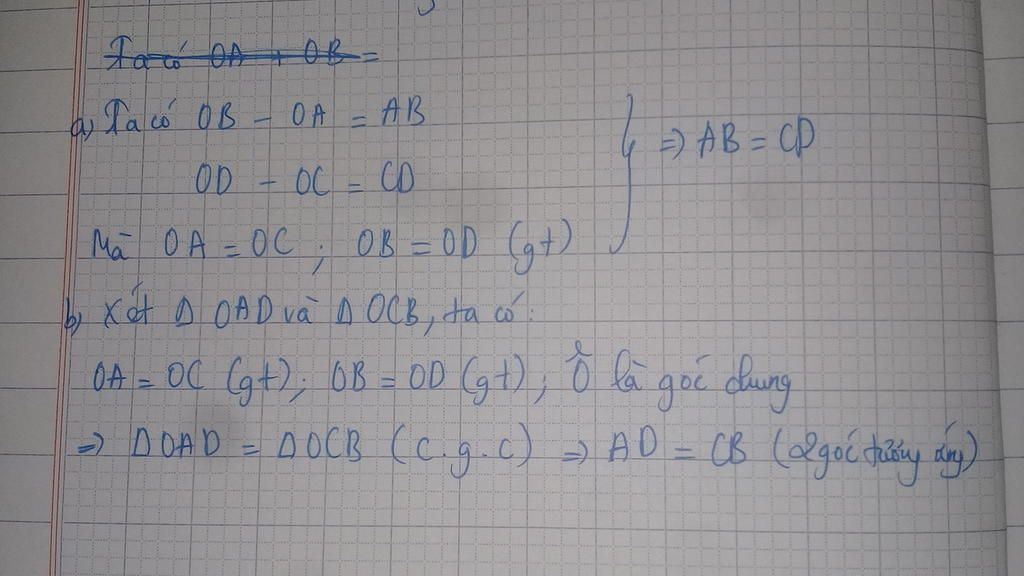 Ta có OA + OB =
a, Ta có OB - OA = AB
OD - OC = CD
} => AB = CD
Mà OA = OC ; OB = OD (gt)
b, Xét Δ OAD và Δ OCB, ta có:
OA = OC (gt); OB = OD (gt); Ô là góc chung
=> ΔOAD = ΔOCB (c.g.c) => AD = CB (2 góc tương ứng)